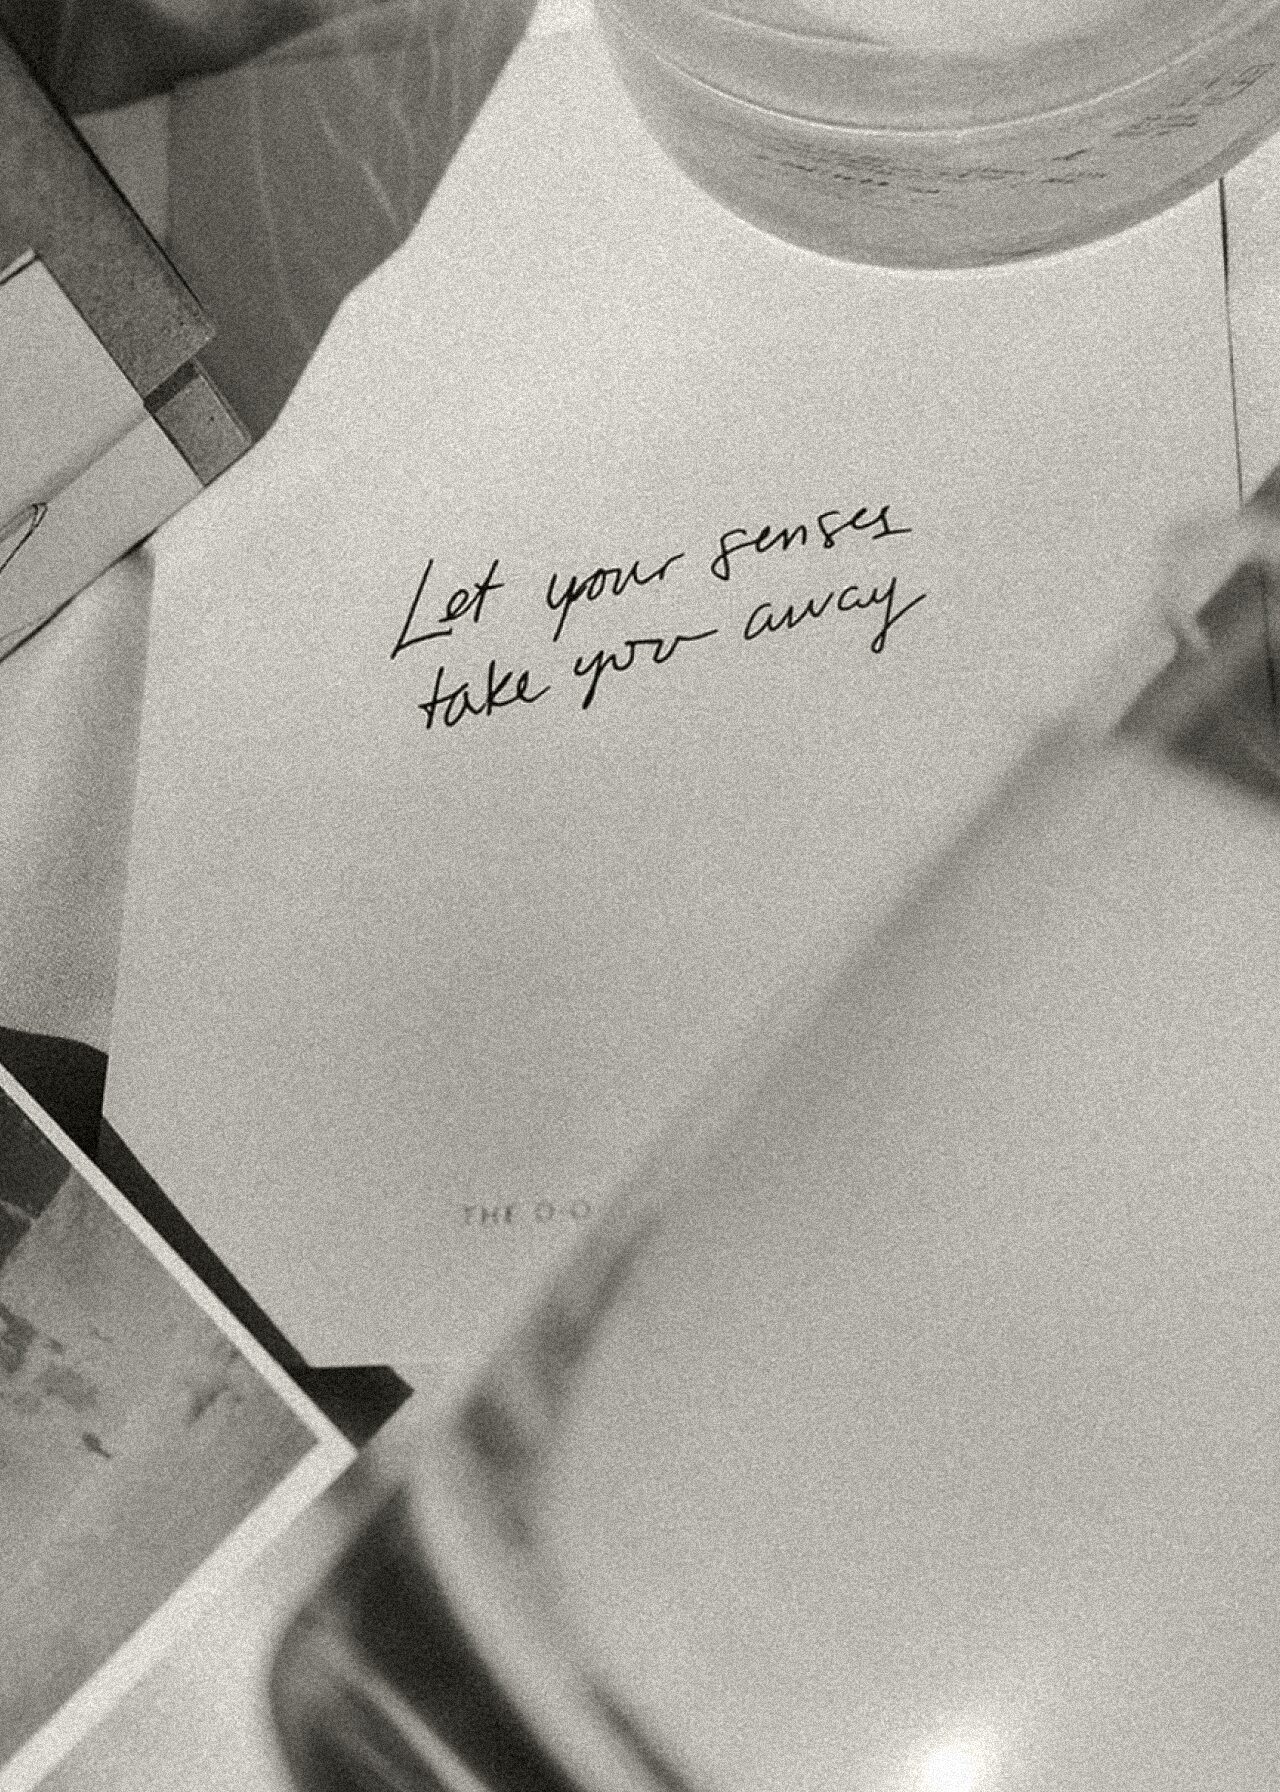 Let your senses
take you away
THE O·O